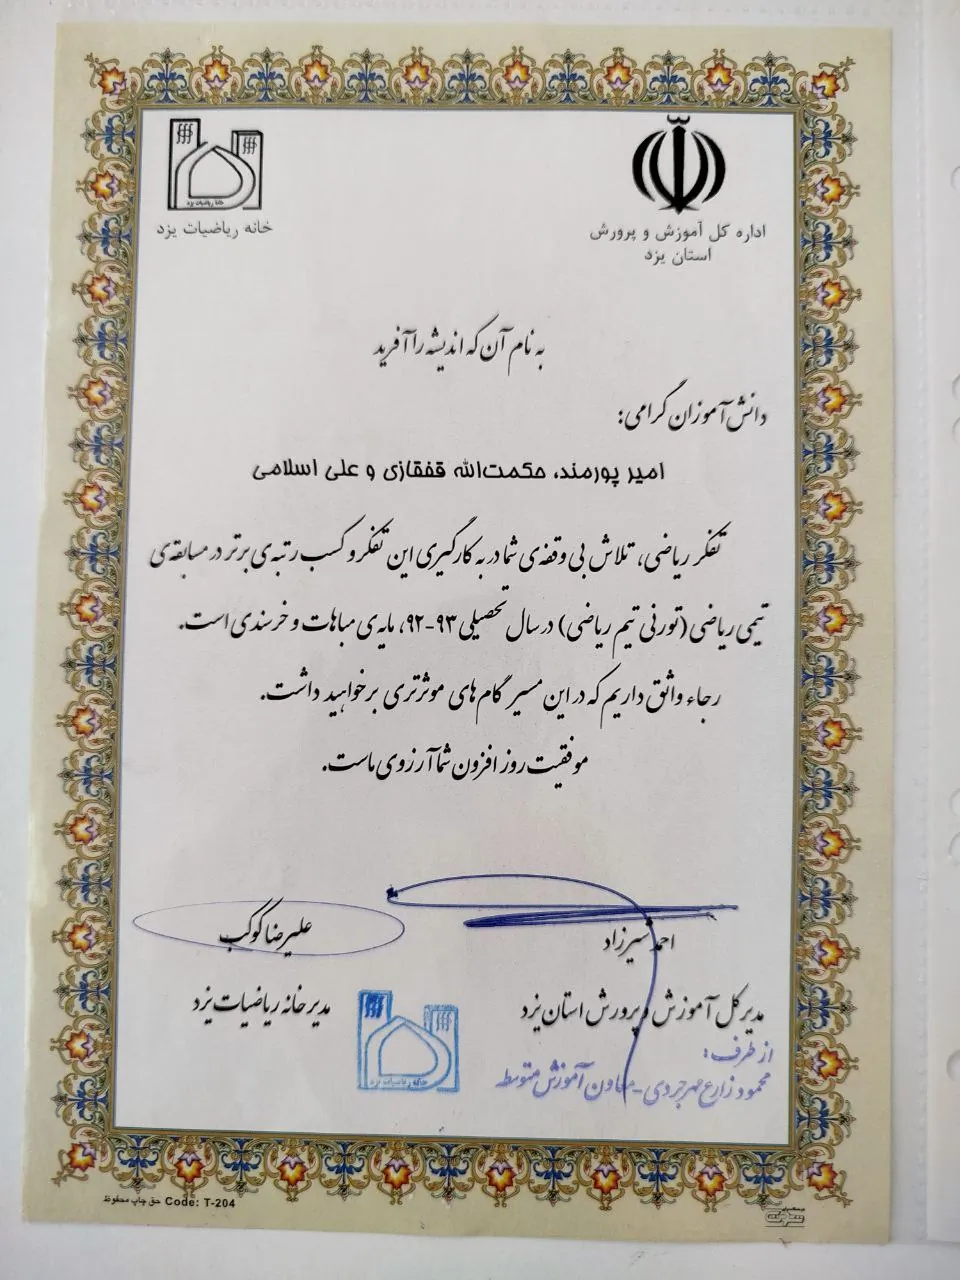 خانه ریاضیات یزد
اداره کل آموزش و پرورش
استان یزد
به نام آن که اندیشه را آفرید
دانش‌آموزان گرامی؛
امیر پورمند، حکمت‌الله قفقازی و علی اسلامی
تفکر ریاضی، تلاش بی وقفه‌ی شما در به کارگیری این تفکر و کسب رتبه‌ی برتر در مسابقه‌ی
تیمی ریاضی (تورنی تیم ریاضی) در سال تحصیلی ۹۳-۹۲، مایه‌ی مباهات و خرسندی است.
رجاء واثق داریم که در این مسیر گام های موثرتری برخواهید داشت.
موفقیت روز افزون شما آرزوی ماست.
احمد سیرزاد
علیرضا کوکب
مدیر کل آموزش و پرورش استان یزد
مدیر خانه ریاضیات یزد
از طرف:
محمود زارع مهرجردی - معاون آموزش متوسطه
خانه ریاضیات یزد
حق چاپ محفوظ Code: T-204